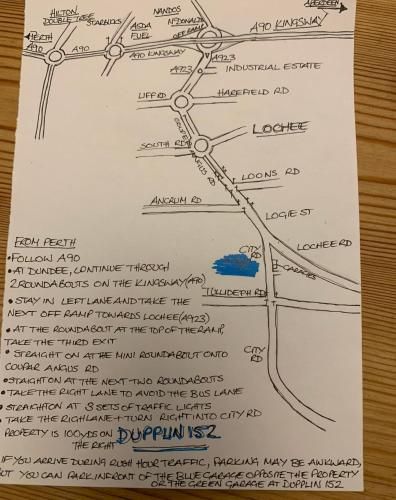 HILTON
DOUBLE TREE
STARBUCKS
ASDA
FUEL
NANDOS
McDONALDS
OFF RAMP
ABERDEEN
A90 KINGSWAY
PERTH
A90
A90
A90 KINGSWAY
A923
A923
INDUSTRIAL ESTATE
LIFF RD
HAREFIELD RD
COUPAR ANGUS RD
LOCHEE
SOUTH RD
LOONS RD
ANCRUM RD
LOGIE ST
LOCHEE RD
CITY
RD
GARAGES
TULLIDEPH RD
CITY
RD
FROM PERTH
• FOLLOW A90
• AT DUNDEE, CONTINUE THROUGH
2 ROUNDABOUTS ON THE KINGSWAY (A90)
• STAY IN LEFT LANE AND TAKE THE
NEXT OFF RAMP TOWARDS LOCHEE (A923)
• AT THE ROUNDABOUT AT THE TOP OF THE RAMP,
TAKE THE THIRD EXIT
• STRAIGHT ON AT THE MINI ROUNDABOUT ONTO
COUPAR ANGUS RD
• STRAIGHT ON AT THE NEXT TWO ROUNDABOUTS
• TAKE THE RIGHT LANE TO AVOID THE BUS LANE
• STRAIGHT ON AT 3 SETS OF TRAFFIC LIGHTS
• TAKE THE RIGH LANE + TURN RIGHT INTO CITY RD
PROPERTY IS 100YDS ON DUPPLIN 152
THE RIGHT
IF YOU ARRIVE DURING RUSH HOUR TRAFFIC, PARKING MAY BE AWKWARD,
BUT YOU CAN PARK IN FRONT OF THE BLUE GARAGE OPPOSITE THE PROPERTY
OR THE GREEN GARAGE AT DUPPLIN 152